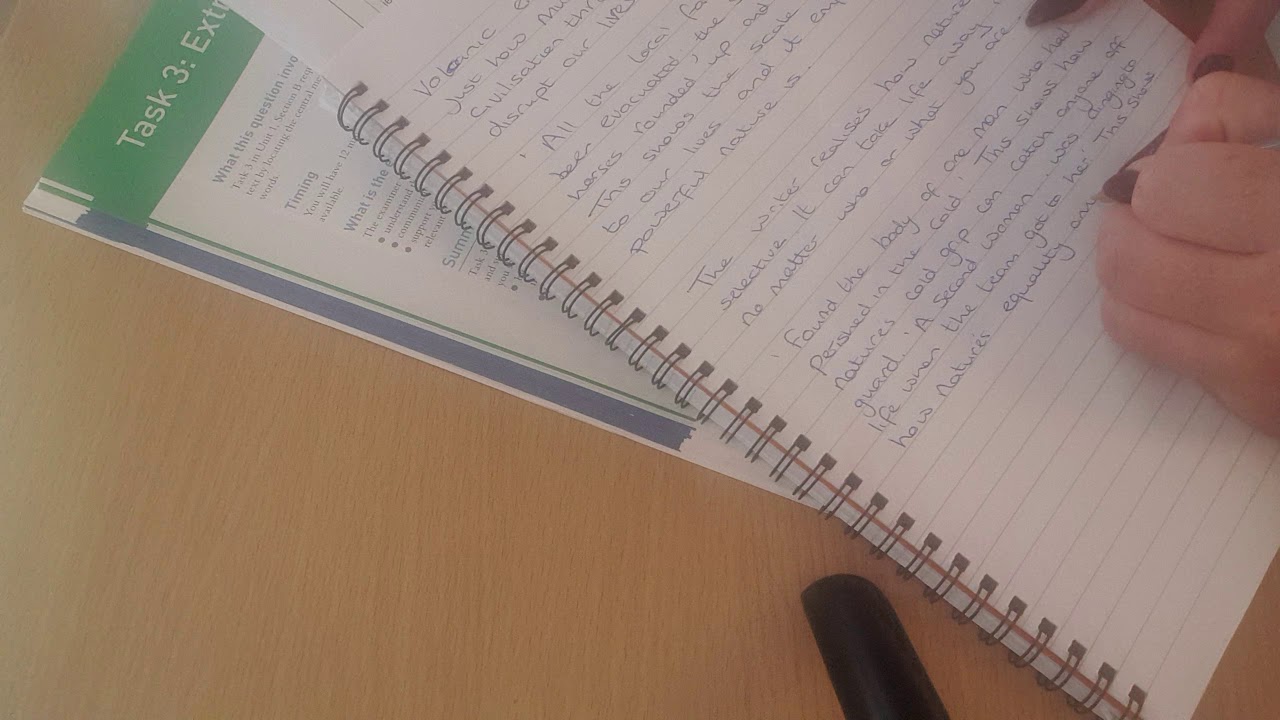 Task 3: Extr
What this question invo
Task 3 in Unit 1, Section B req
text by locating the central me
words
Timing
You will have 12 m
available.
What is the
The examiner
• understand
• commun
• support y
relevant
Summ
Task
and
you
Volcanic
Just how mu
Civilisation thr
disrupt our lives
' All the local fa
been evacuated, the
horses rounded up and
This shows the scale
to our lives and it emp
powerful nature is.
The writer realises how nature
selective. It can take life away
no matter who or what you are
' Found the body of one man who had
Perished in the cold', This shows how
natures cold grip can catch anyone off
guard. 'A second woman was clinging to
life when the team got to her' This shows
how natures equality